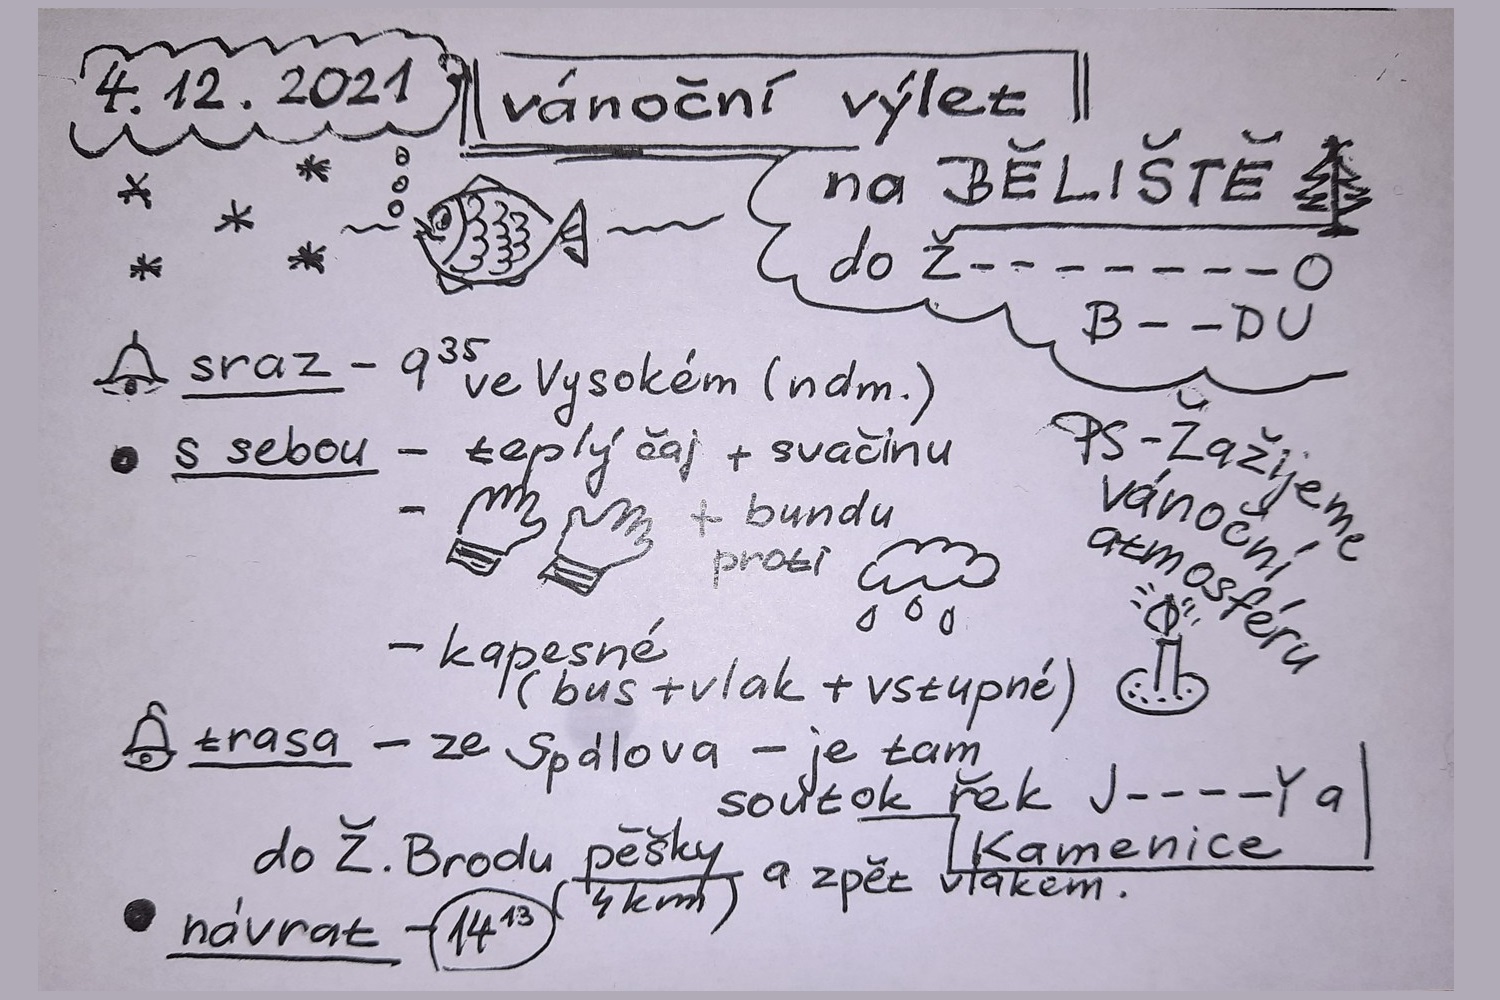 4. 12. 2021 vánoční výlet
na BĚLIŠTĚ
do Ž--------O
B--DU
sraz - 9 35 ve Vysokém (ndm.)
s sebou - teplý čaj + svačinu
- + bundu
proti
- kapesné
(bus + vlak + vstupné)
PS - Žažijeme
vánoční
atmosféru
trasa - ze Spálova - je tam
soutok řek J-----Y a
Kamenice
do Ž. Brodu pěšky a zpět vlakem.
(4 km)
návrat - 14 13